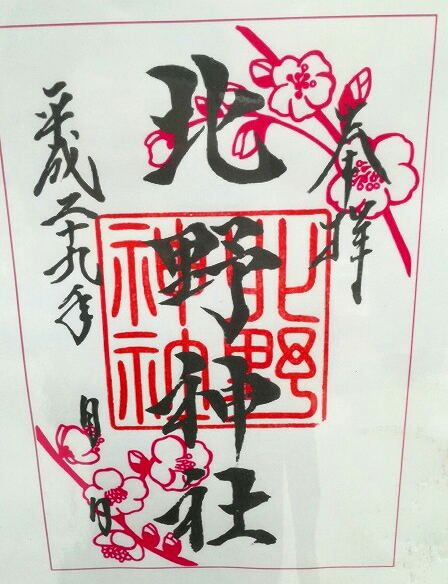 奉拝
北野神社
北野神社
平成二十九年
月
日